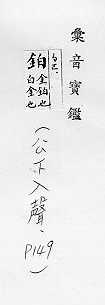 彙音寶鑑
鉑 金鉑也 白金也
(公下入聲.P149)